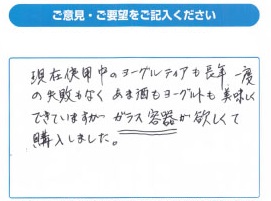 ご意見・ご要望をご記入ください
現在使用中のヨーグルティアも長年一度
の失敗もなく あま酒もヨーグルトも美味しく
できていますが ガラス容器が欲しくて
購入しました。